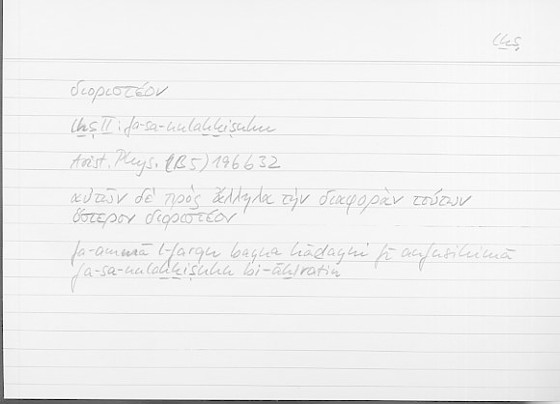 lḫṣ
διοριστέον
lḫṣ II: fa-sa-nulaḫḫiṣuhu
Arist. Phys. (B5) 196b32
αὐτῶν δὲ πρὸς ἄλληλα τὴν διαφορὰν τούτων
ὕστερον διοριστέον
fa-ammā l-farqu bayna hāḏayni fī anfusihimā
fa-sa-nulaḫḫiṣuhu bi-āḫiratin